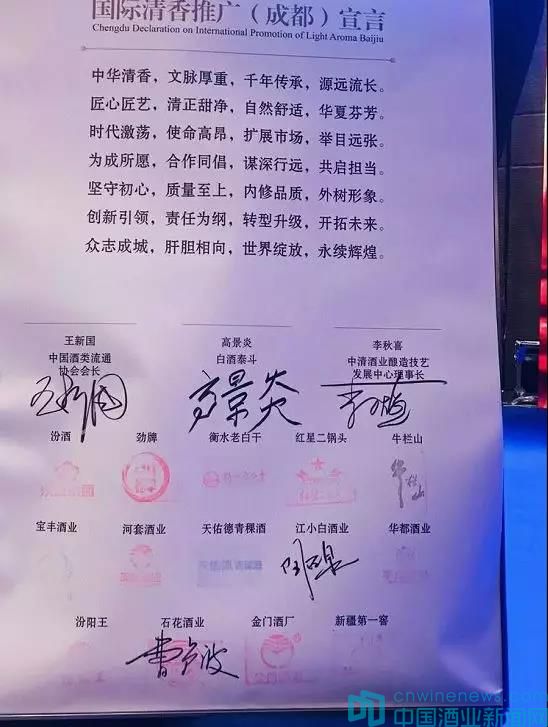 国际清香推广（成都）宣言
Chengdu Declaration on International Promotion of Light Aroma Baijiu
中华清香，文脉厚重，千年传承，源远流长。
匠心匠艺，清正甜净，自然舒适，华夏芬芳。
时代激荡，使命高昂，扩展市场，举目远张。
为成所愿，合作同倡，谋深行远，共启担当。
坚守初心，质量至上，内修品质，外树形象。
创新引领，责任为纲，转型升级，开拓未来。
众志成城，肝胆相向，世界绽放，永续辉煌。
王新国 高景炎 李秋喜
中国酒类流通 白酒泰斗 中清酒业酿造技艺
协会会长 发展中心理事长
王新国 高景炎
汾酒 劲牌 衡水老白干 红星二锅头 牛栏山
牛栏山
宝丰酒业 河套酒业 天佑德青稞酒 江小白酒业 华都酒业
汾阳王 石花酒业 金门酒厂 新疆第一窖
曹卓波
cnwinenews.com
中国酒业新闻网